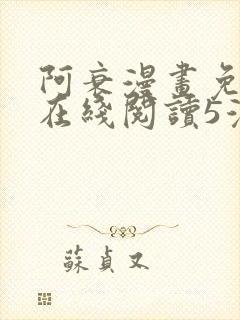 阿衰漫畫免
在綫閱讀5
蘇貞又